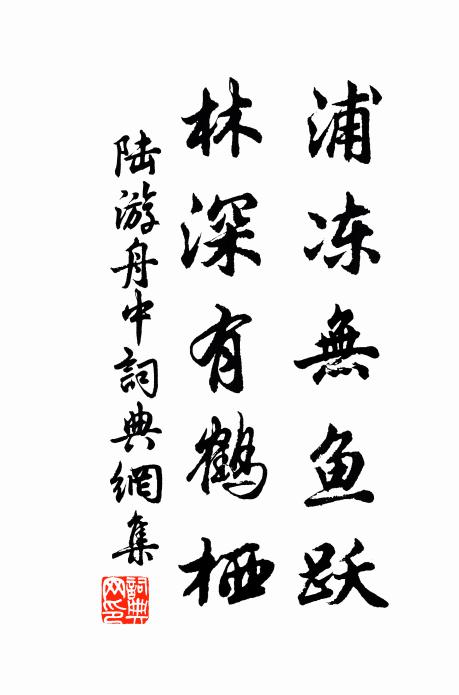 浦冻無鱼跃
林深有鹤栖
陆游舟中詞典網集
詞典网印